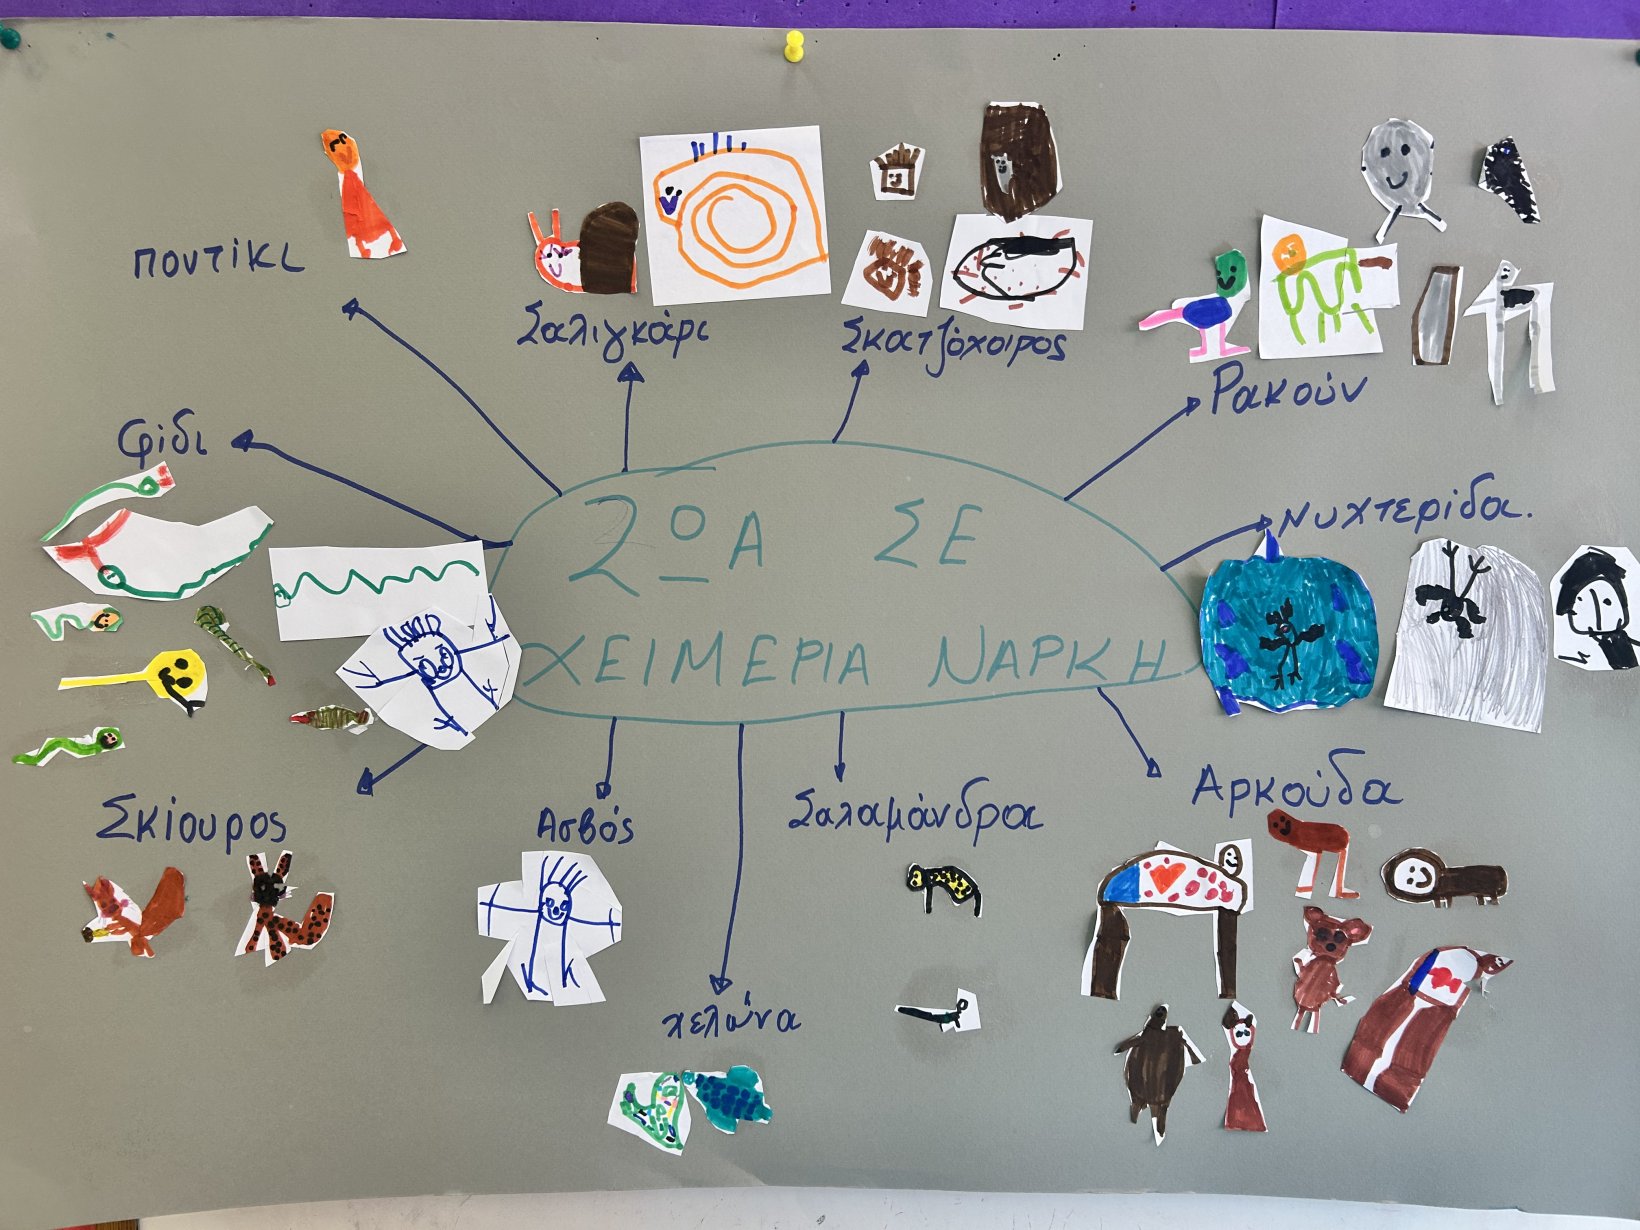 ποντίκι
Σαλιγκάρι
Σκατζόχοιρος
Ρακούν
φίδι
Νυχτερίδα.
ΖΩΑ ΣΕ
ΧΕΙΜΕΡΙΑ ΝΑΡΚΗ
Σκίουρος
Ασβός
Σαλαμάνδρα
Αρκούδα
χελώνα